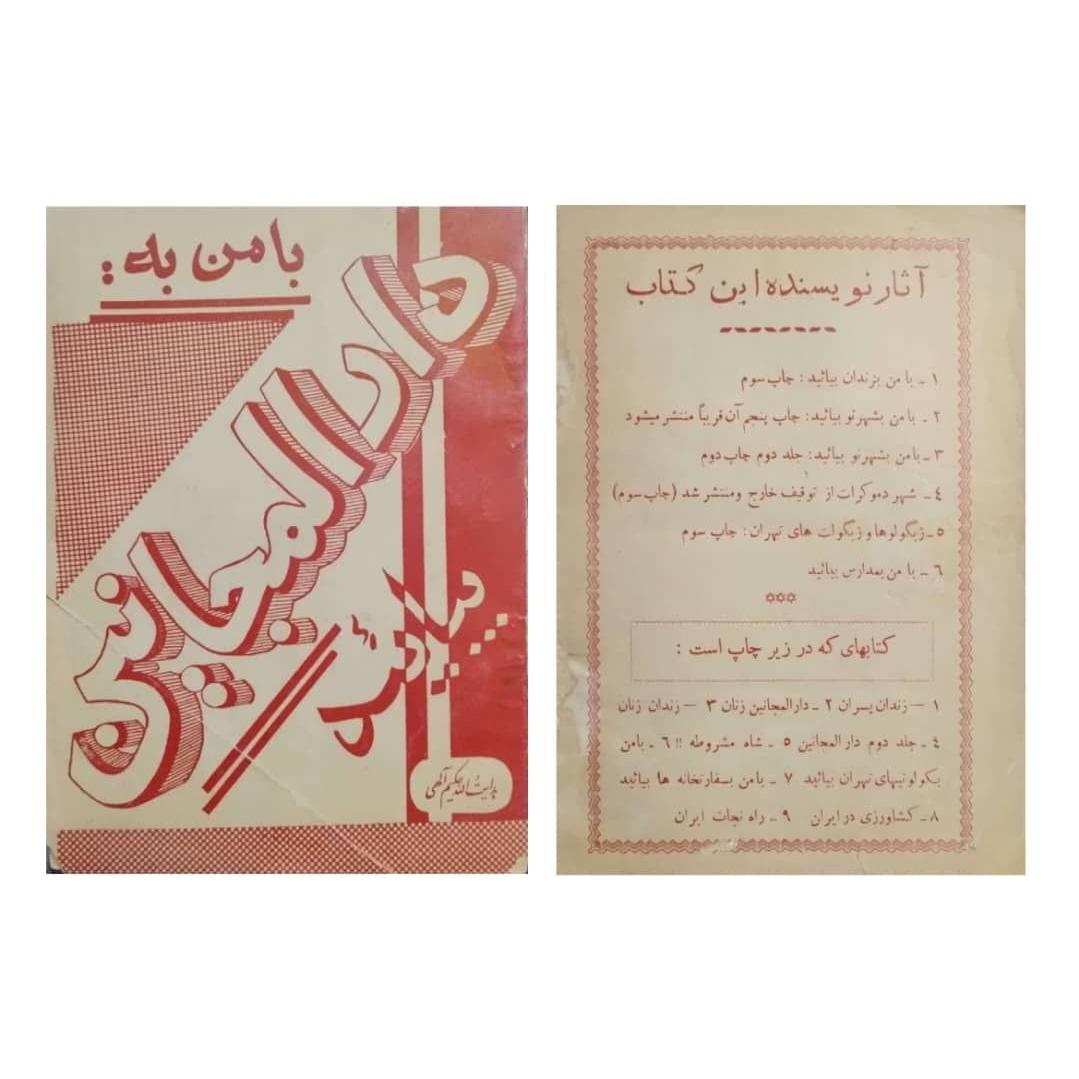 با من به :
دارالمجانین
بیائید
هدایت الله حکیم الهی
آثار نویسنده این کتاب
۱ ـ با من بزندان بیائید : چاپ سوم
۲ ـ با من بشهرنو بیائید : چاپ پنجم آن قریباً منتشر میشود
۳ ـ بامن بشهرنو بیائید : جلد دوم چاپ دوم
٤ ـ شهر دموکرات از توقیف خارج ومنتشر شد (چاپ سوم)
٥ ـ ژیگولوها و ژیگولت های تهران : چاپ سوم
٦ ـ با من بمدارس بیائید
کتابهای که در زیر چاپ است :
۱ ـ زندان پسران ۲ ـ دارالمجانین زنان ۳ ـ زندان زنان
٤ ـ جلد دوم دارالمجانین ٥ ـ شاه مشروطه !! ٦ ـ بامن
بکولونیهای تهران بیائید ۷ ـ بامن بسفارتخانه ها بیائید
۸ ـ کشاورزی در ایران ۹ ـ راه نجات ایران